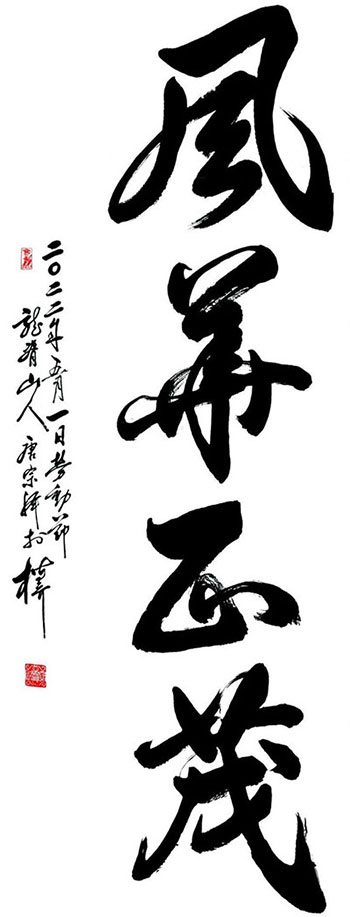 風華正茂
二〇二二年五月一日劳動節
龍脊山人唐宗